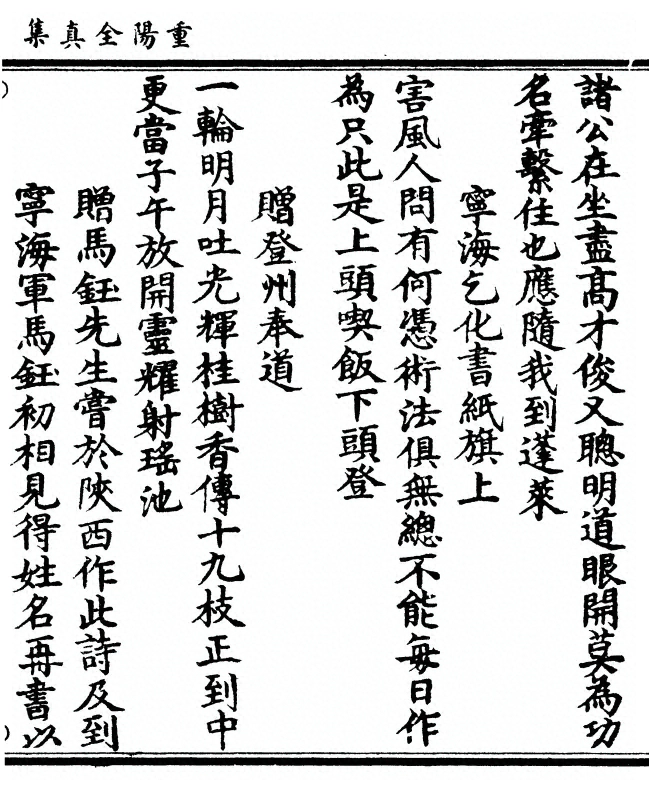 重陽全真集
諸公在坐盡高才俊又聰明道眼開莫為功
名牽繫住也應隨我到蓬萊
寧海乞化書紙旗上
害風人問有何憑術法俱無總不能每日作
為只此是上頭喫飯下頭登
贈登州奉道
一輪明月吐光輝桂樹香傳十九枝正到中
更當子午放開靈耀射瑤池
贈馬鈺先生嘗於陝西作此詩及到
寧海軍馬鈺初相見得姓名再書以